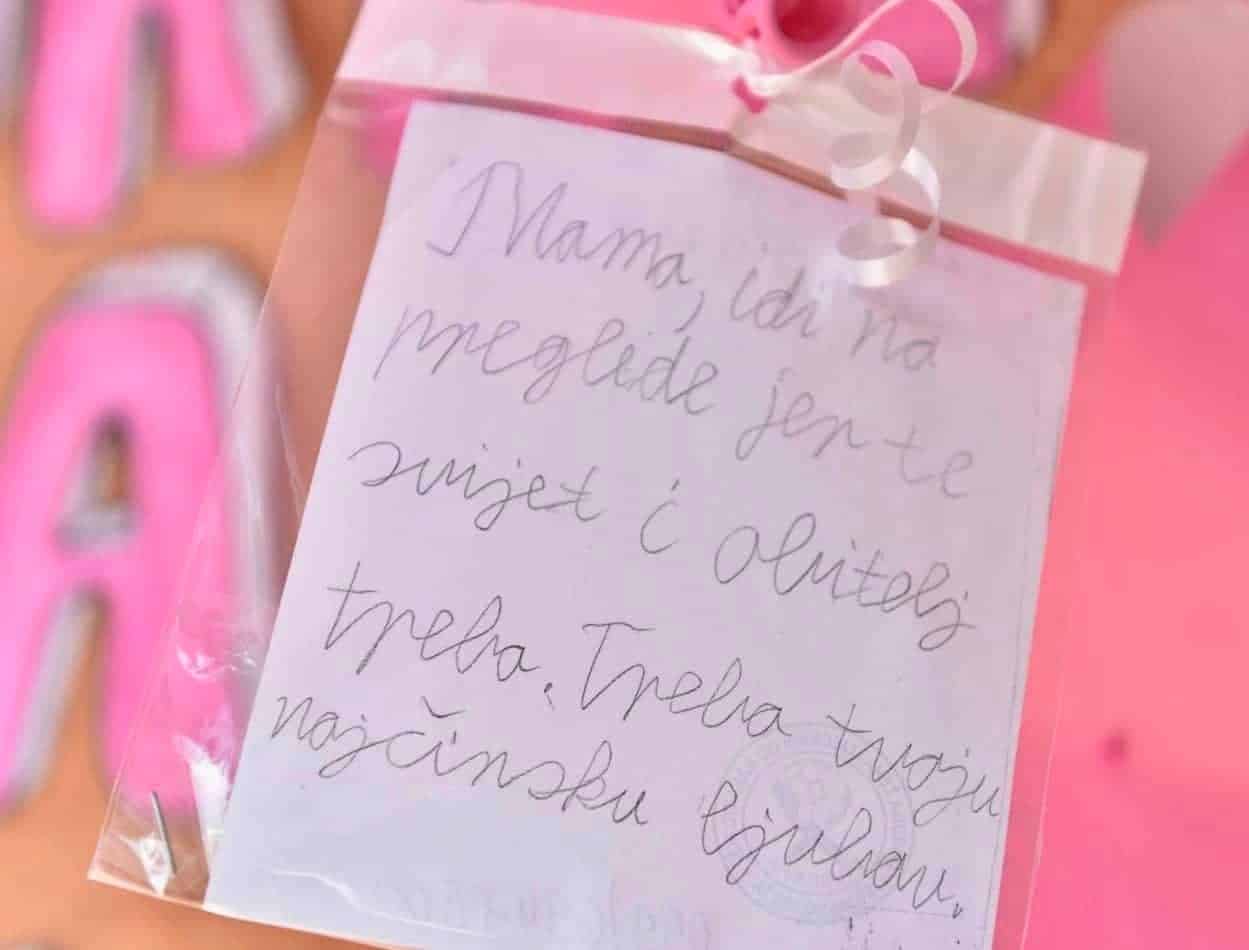 Mama, idi na
preglede jer te
svijet i obitelj
treba. Treba tvoju
najčinsku ljubav.